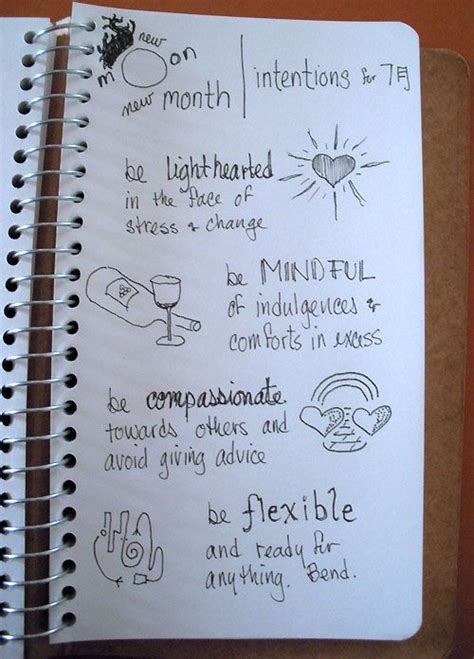 new moon
new month
intentions for 7月
be lighthearted
in the face of
stress & change
be MINDFUL
of indulgences &
comforts in excess
be compassionate
towards others and
avoid giving advice
be flexible
and ready for
anything. Bend.